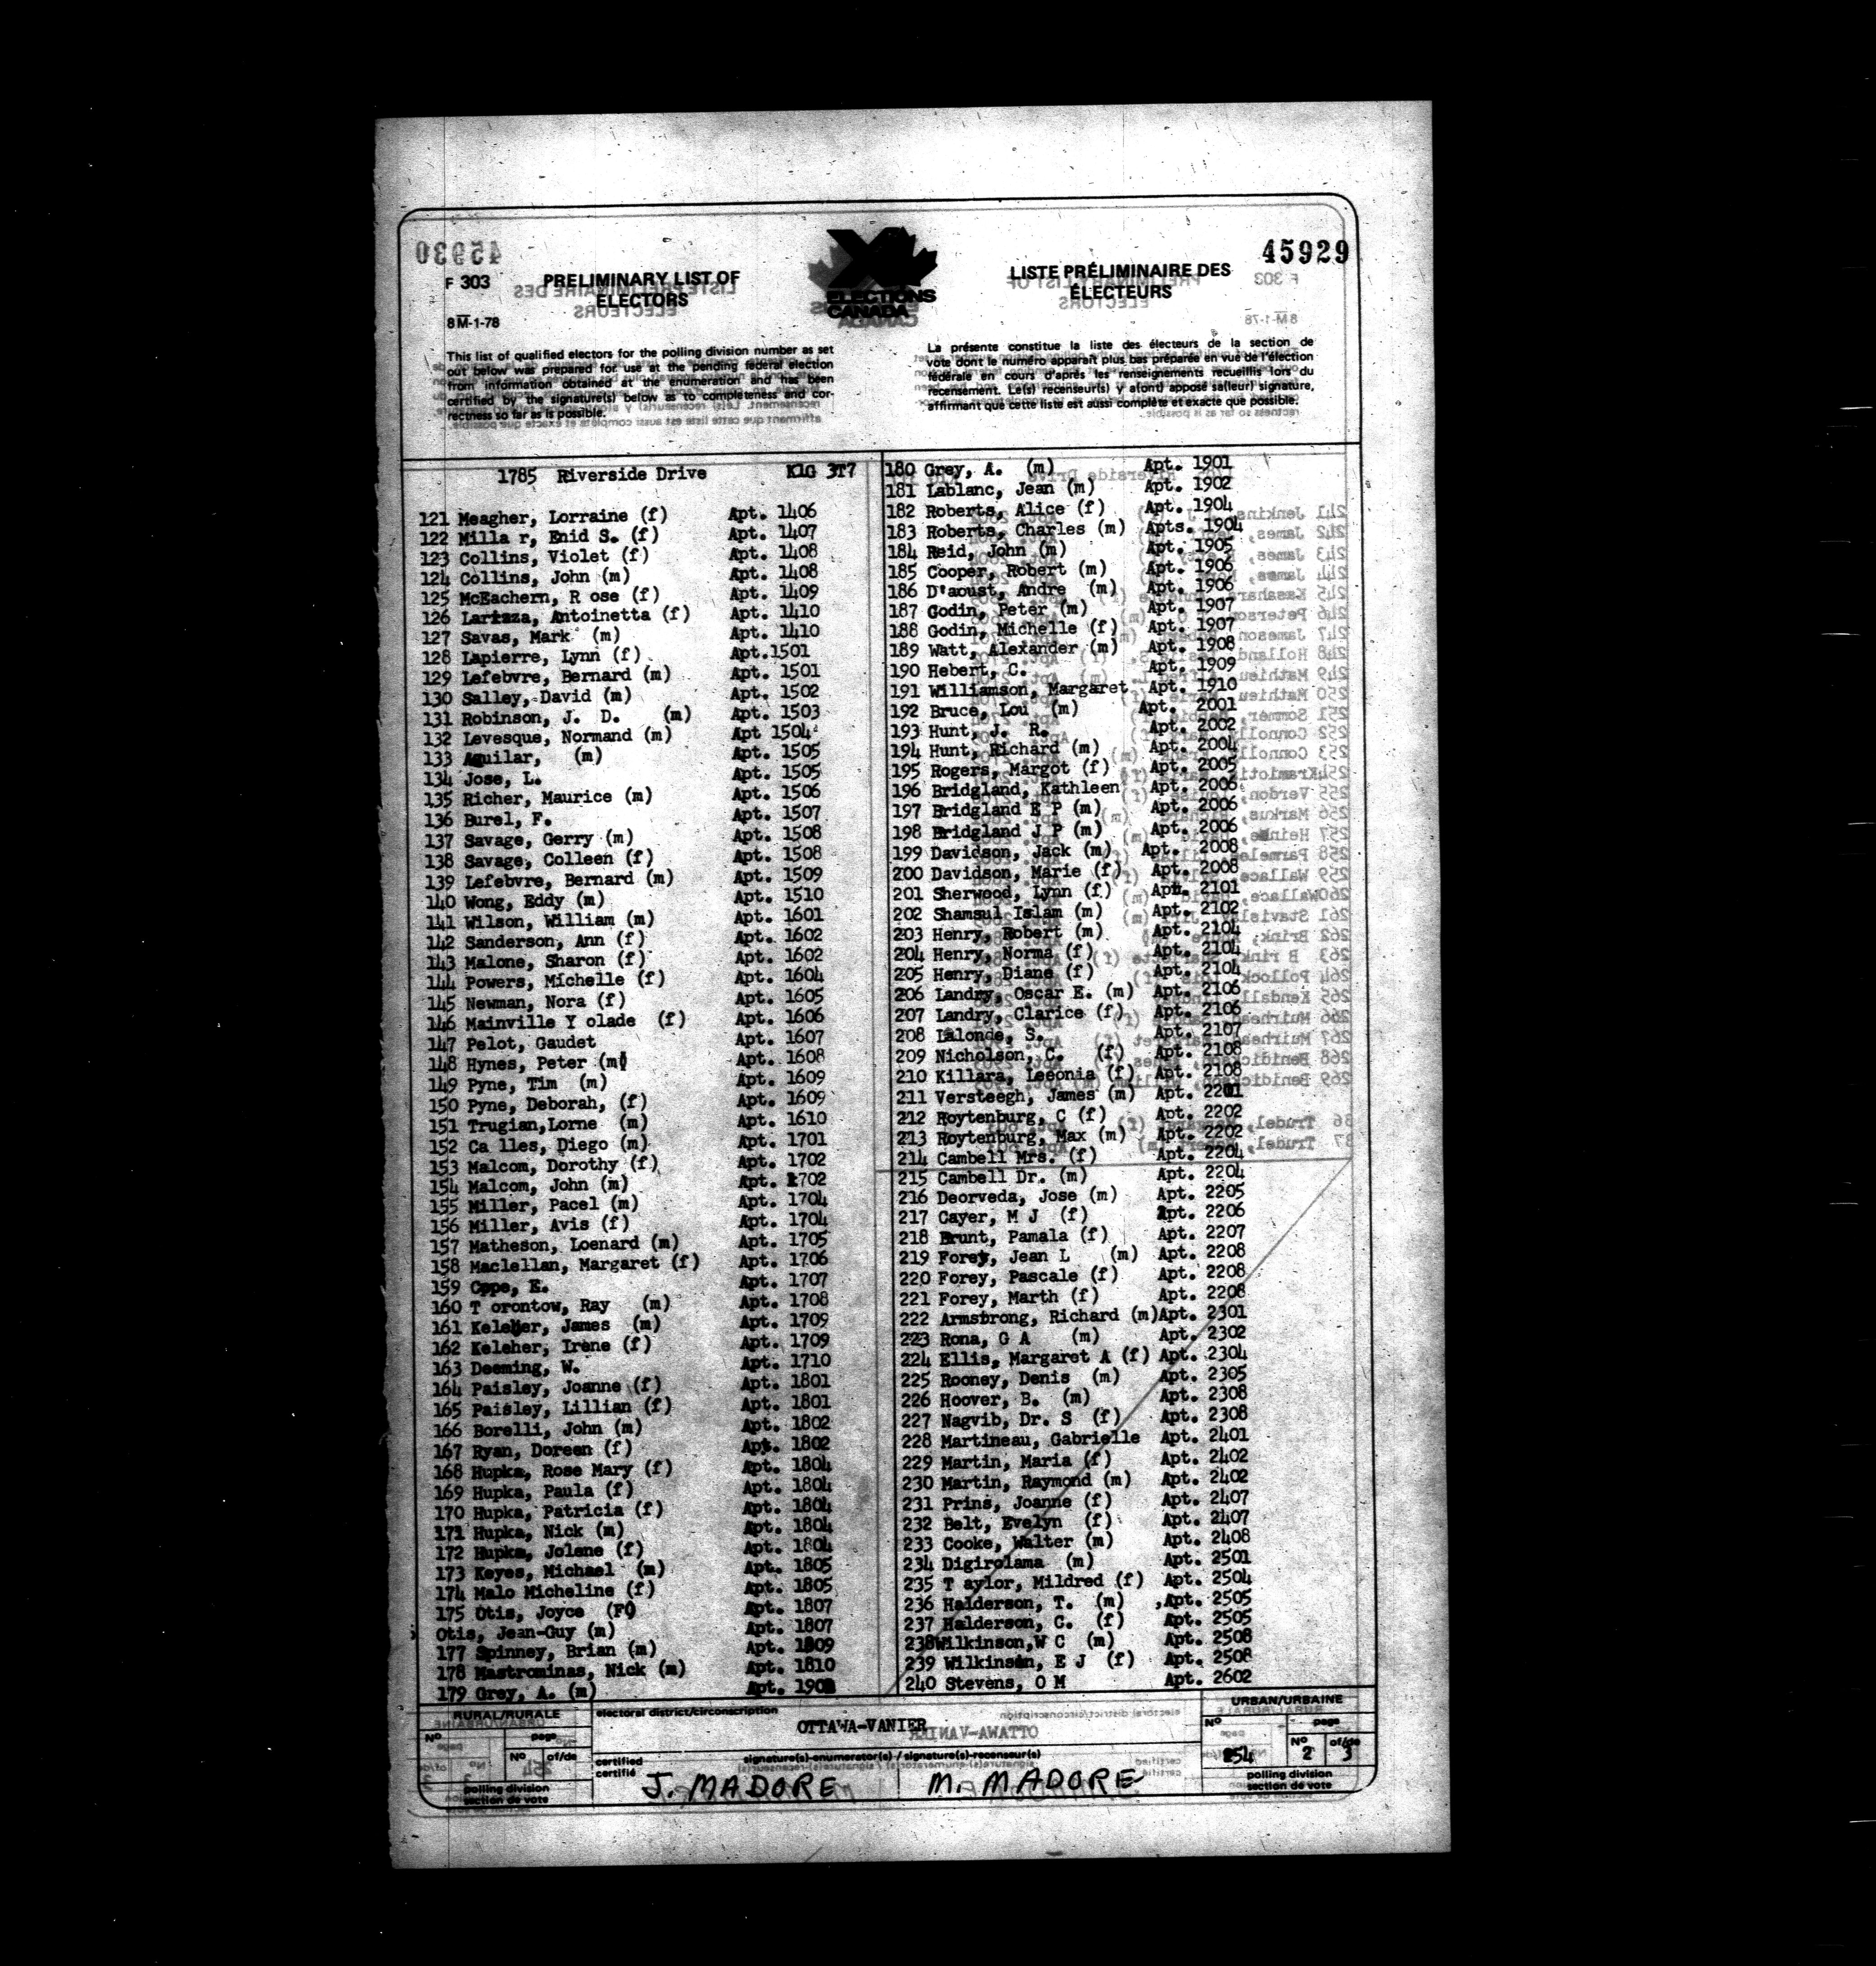 45929
F 303
PRELIMINARY LIST OF
ELECTORS
8M-1-78
ELECTIONS
CANADA
LISTE PRÉLIMINAIRE DES
ÉLECTEURS
This list of qualified electors for the polling division number as set
out below was prepared for use at the pending federal election
from information obtained at the enumeration and has been
certified by the signature(s) below as to completeness and cor-
rectness so far as is possible.
La présente constitue la liste des électeurs de la section de
vote dont le numéro apparaît plus bas préparée en vue de l'élection
fédérale en cours d'après les renseignements recueillis lors du
recensement. Le(s) recenseur(s) y a(ont) apposé sa(leur) signature,
affirmant que cette liste est aussi complète et exacte que possible.
1785 Riverside Drive K1G 3T7
121 Meagher, Lorraine (f) Apt. 1406
122 Milla r, Enid S. (f) Apt. 1407
123 Collins, Violet (f) Apt. 1408
124 Collins, John (m) Apt. 1408
125 McEachern, R ose (f) Apt. 1409
126 Larizza, Antoinetta (f) Apt. 1410
127 Savas, Mark (m) Apt. 1410
128 Lapierre, Lynn (f) Apt.1501
129 Lefebvre, Bernard (m) Apt. 1501
130 Salley, David (m) Apt. 1502
131 Robinson, J. D. (m) Apt. 1503
132 Levesque, Normand (m) Apt 1504
133 Aguilar, (m) Apt. 1505
134 Jose, L. Apt. 1505
135 Richer, Maurice (m) Apt. 1506
136 Burel, F. Apt. 1507
137 Savage, Gerry (m) Apt. 1508
138 Savage, Colleen (f) Apt. 1508
139 Lefebvre, Bernard (m) Apt. 1509
140 Wong, Eddy (m) Apt. 1510
141 Wilson, William (m) Apt. 1601
142 Sanderson, Ann (f) Apt. 1602
143 Malone, Sharon (f) Apt. 1602
144 Powers, Michelle (f) Apt. 1604
145 Newman, Nora (f) Apt. 1605
146 Mainville Y olade (f) Apt. 1606
147 Pelot, Gaudet Apt. 1607
148 Hynes, Peter (m) Apt. 1608
149 Pyne, Tim (m) Apt. 1609
150 Pyne, Deborah, (f) Apt. 1609
151 Trugian,Lorne (m) Apt. 1610
152 Ca lles, Diego (m) Apt. 1701
153 Malcom, Dorothy (f) Apt. 1702
154 Malcom, John (m) Apt. 1702
155 Miller, Pacel (m) Apt. 1704
156 Miller, Avis (f) Apt. 1704
157 Matheson, Loenard (m) Apt. 1705
158 Maclellan, Margaret (f) Apt. 1706
159 Cope, E. Apt. 1707
160 T orontow, Ray (m) Apt. 1708
161 Keleher, James (m) Apt. 1709
162 Keleher, Irene (f) Apt. 1709
163 Deeming, W. Apt. 1710
164 Paisley, Joanne (f) Apt. 1801
165 Paisley, Lillian (f) Apt. 1801
166 Borelli, John (m) Apt. 1802
167 Ryan, Doreen (f) Apt. 1802
168 Hupka, Rose Mary (f) Apt. 1804
169 Hupka, Paula (f) Apt. 1804
170 Hupka, Patricia (f) Apt. 1804
171 Hupka, Nick (m) Apt. 1804
172 Hupka, Jolene (f) Apt. 1804
173 Keyes, Michael (m) Apt. 1805
174 Malo Micheline (f) Apt. 1805
175 Otis, Joyce (F) Apt. 1807
Otis, Jean-Guy (m) Apt. 1807
177 Spinney, Brian (m) Apt. 1809
178 Mastrominas, Nick (m) Apt. 1810
179 Grey, A. (m) Apt.
180 Grey, A. (m) Apt. 1901
181 Lablanc, Jean (m) Apt. 1902
182 Roberts, Alice (f) Apt. 1904
183 Roberts, Charles (m) Apts. 1904
184 Reid, John (m) Apt. 1905
185 Cooper, Robert (m) Apt. 1906
186 D'aoust, Andre (m) Apt. 1906
187 Godin, Peter (m) Apt. 1907
188 Godin, Michelle (f) Apt. 1907
189 Watt, Alexander (m) Apt. 1908
190 Hebert, C. Apt. 1909
191 Williamson, Margaret Apt. 1910
192 Bruce, Lou (m) Apt. 2001
193 Hunt, J. R. Apt. 2002
194 Hunt, Richard (m) Apt. 2004
195 Rogers, Margot (f) Apt. 2005
196 Bridgland, Kathleen Apt. 2006
197 Bridgland E P (m) Apt. 2006
198 Bridgland J P (m) Apt. 2006
199 Davidson, Jack (m) Apt. 2008
200 Davidson, Marie (f) Apt. 2008
201 Sherwood, Lynn (f) Apt. 2101
202 Shamsul Islam (m) Apt. 2102
203 Henry, Robert (m) Apt. 2104
204 Henry, Norma (f) Apt. 2104
205 Henry, Diane (f) Apt. 2104
206 Landry, Oscar E. (m) Apt. 2106
207 Landry, Clarice (f) Apt. 2106
208 Lalonde, S. Apt. 2107
209 Nicholson, C. (f) Apt. 2108
210 Killara, Leeonia (f) Apt. 2108
211 Versteegh, James (m) Apt. 2201
212 Roytenburg, C (f) Apt. 2202
213 Roytenburg, Max (m) Apt. 2202
214 Cambell Mrs. (f) Apt. 2204
215 Cambell Dr. (m) Apt. 2204
216 Deorveda, Jose (m) Apt. 2205
217 Cayer, M J (f) Apt. 2206
218 Brunt, Pamala (f) Apt. 2207
219 Forey, Jean L (m) Apt. 2208
220 Forey, Pascale (f) Apt. 2208
221 Forey, Marth (f) Apt. 2208
222 Armstrong, Richard (m)Apt. 2301
223 Rona, G A (m) Apt. 2302
224 Ellis, Margaret A (f) Apt. 2304
225 Rooney, Denis (m) Apt. 2305
226 Hoover, B. (m) Apt. 2308
227 Nagvib, Dr. S (f) Apt. 2308
228 Martineau, Gabrielle Apt. 2401
229 Martin, Maria (f) Apt. 2402
230 Martin, Raymond (m) Apt. 2402
231 Prins, Joanne (f) Apt. 2407
232 Belt, Evelyn (f) Apt. 2407
233 Cooke, Walter (m) Apt. 2408
234 Digirolama (m) Apt. 2501
235 T aylor, Mildred (f) Apt. 2504
236 Halderson, T. (m) Apt. 2505
237 Halderson, C. (f) Apt. 2505
238Wilkinson,W C (m) Apt. 2508
239 Wilkinson, E J (f) Apt. 2508
240 Stevens, O M Apt. 2602
RURAL/RURALE
No
page
No of/de
polling division
section de vote
electoral district/circonscription
OTTAWA-VANIER
certified
certifié
signature(s)-enumerator(s) / signature(s)-recenseur(s)
J. MADORE M. MADORE
URBAN/URBAINE
No page
No of/de
254 2 3
polling division
section de vote